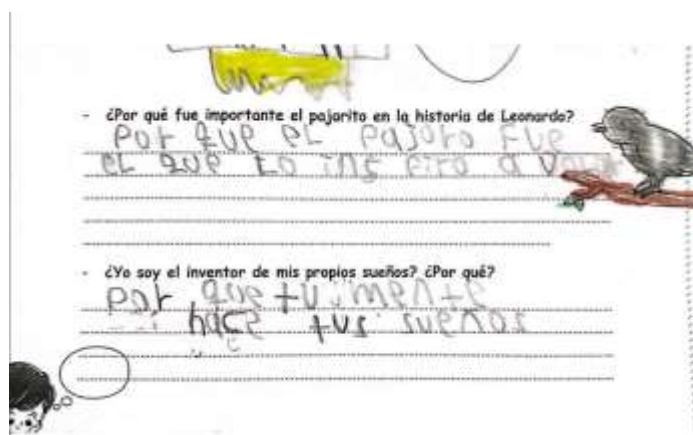 - ¿Por qué fue importante el pajarito en la historia de Leonardo?
Por que el pajoro fue
el que lo ins piro a
- ¿Yo soy el inventor de mis propios sueños? ¿Por qué?
Por que tu mente
hace tus sueños